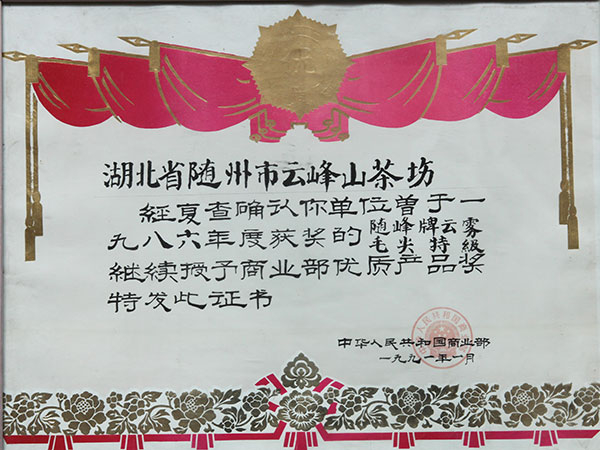 湖北省随州市云峰山茶场
经复查确认你单位曾于一
九八六年度获奖的随峰牌云雾
毛尖特級
继续授予商业部优质产品奖
特发此证书
中华人民共和国商业部
一九九一年一月